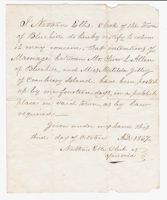 I Nathan Ellis, Clerk of the Town
of Bluehill do hereby certify to whom
it may concern, that intentions of
Marriage between Mr. Allen
of Bluehill, and Miss Matilda Gilley
of Cranberry Island, have been posted
up by me fourteen days, in a public
place in said town as by law
required.
Given under my hand this
third day of October AD. 1847.
Nathan Ellis Clerk of